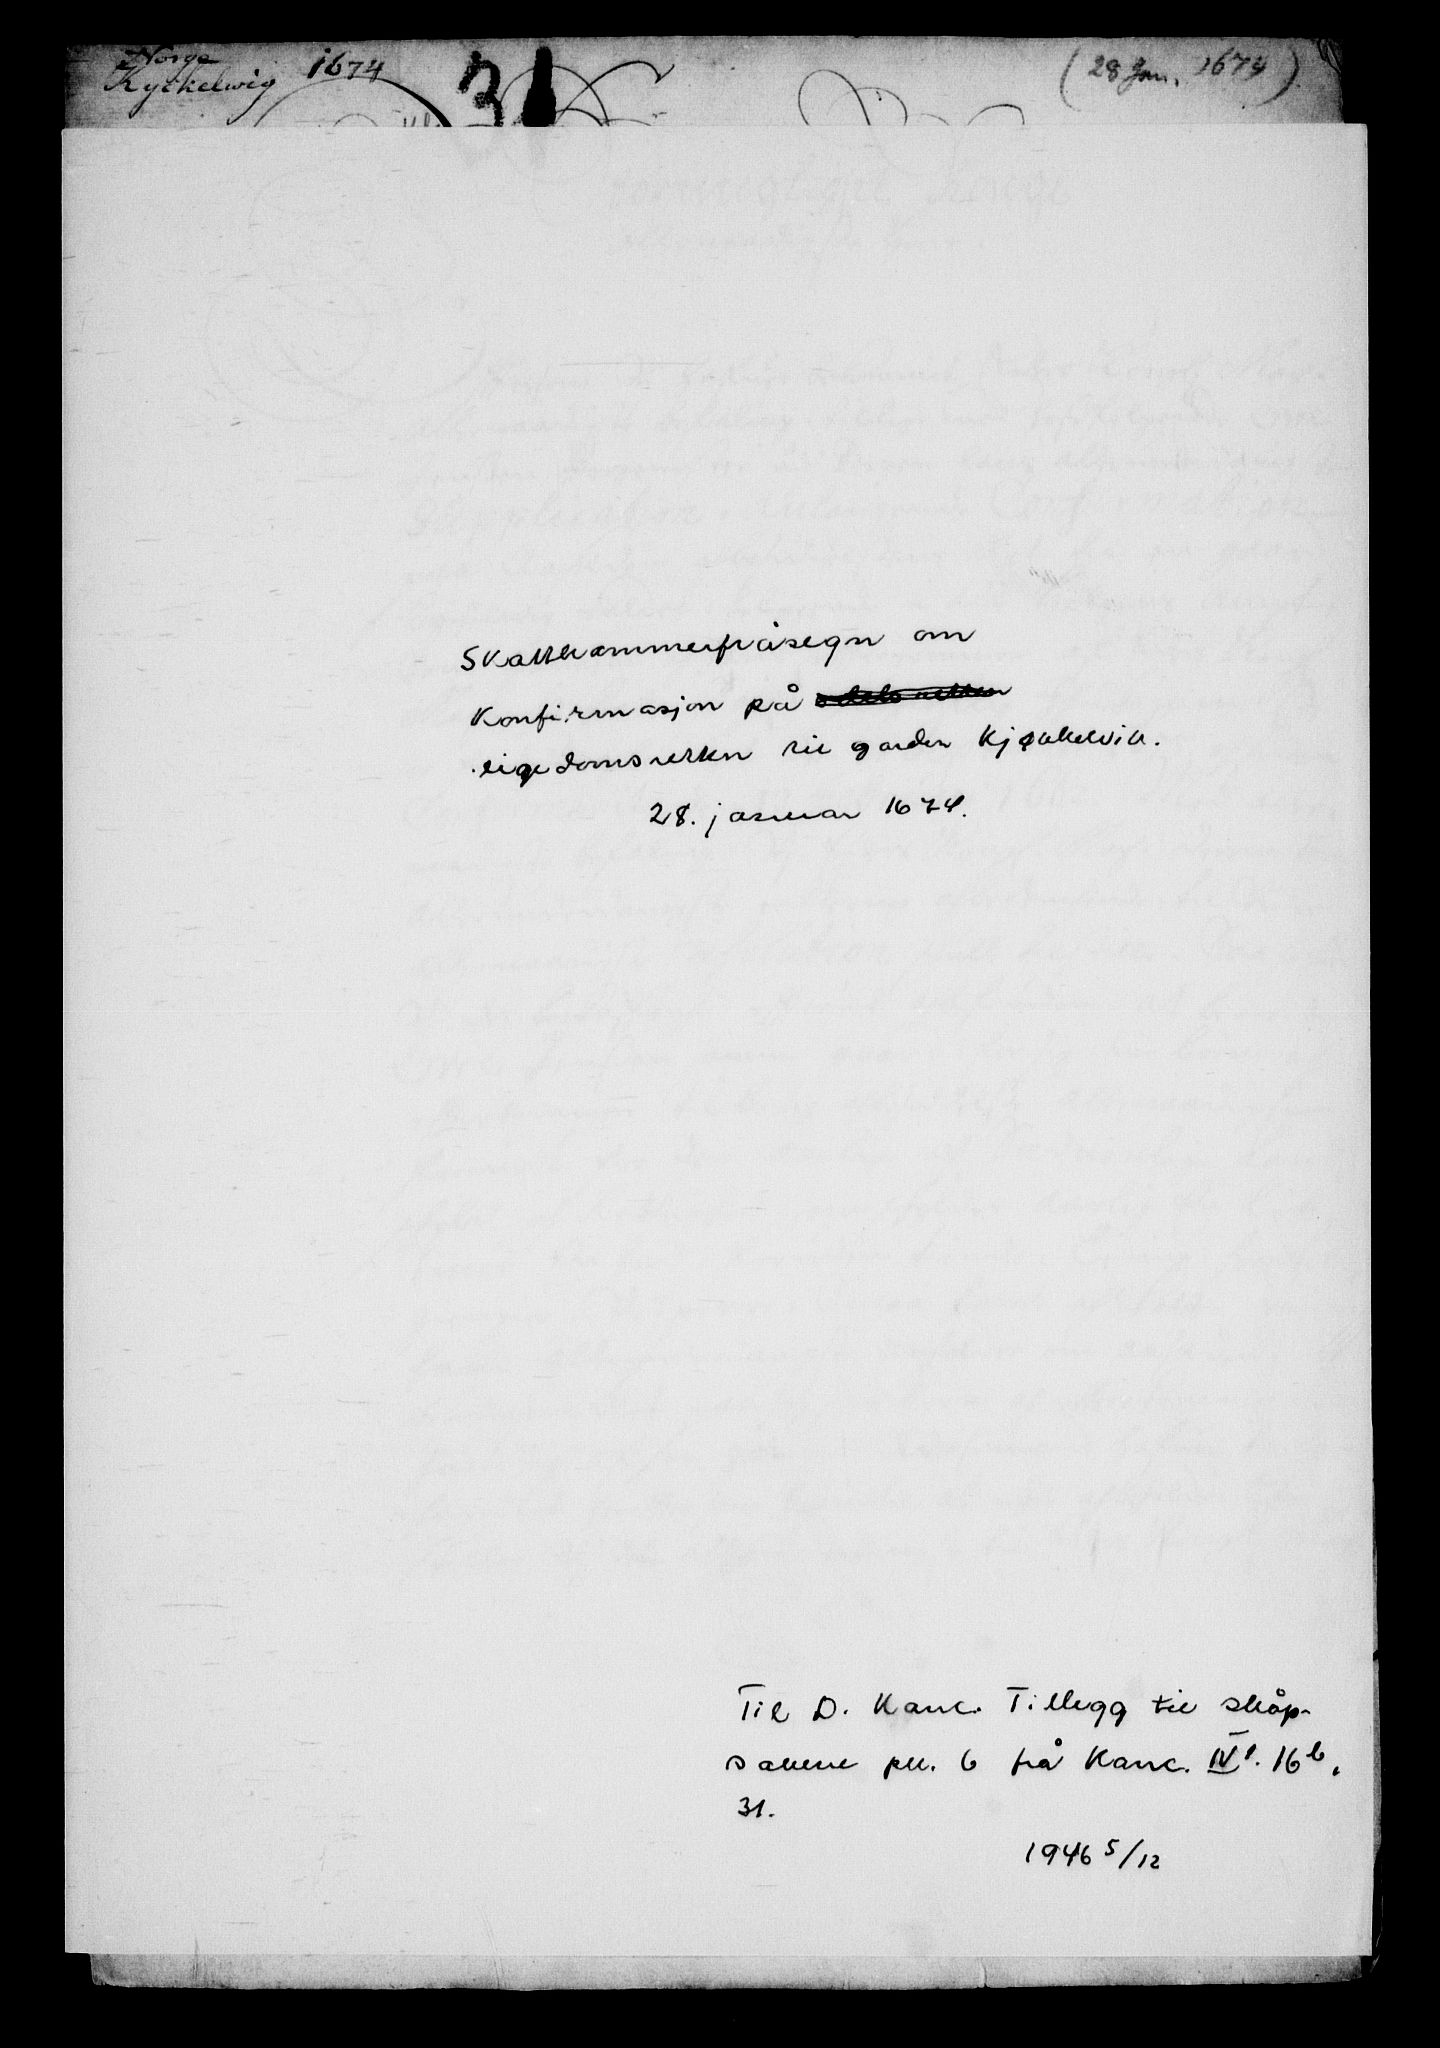 Norge
Kyckelwig 1674
31
(28 Jan. 1674)
Skattkammerfråsegn om
konfirmasjon på odelsretten
eigedomsretten til garden Kjøkkelvik.
28. januar 1674.
Til D. Kanc. Tillegg til skåp-
sakene pk. 6 frå Kanc. IV¹. 16b,
31.
1946 5/12